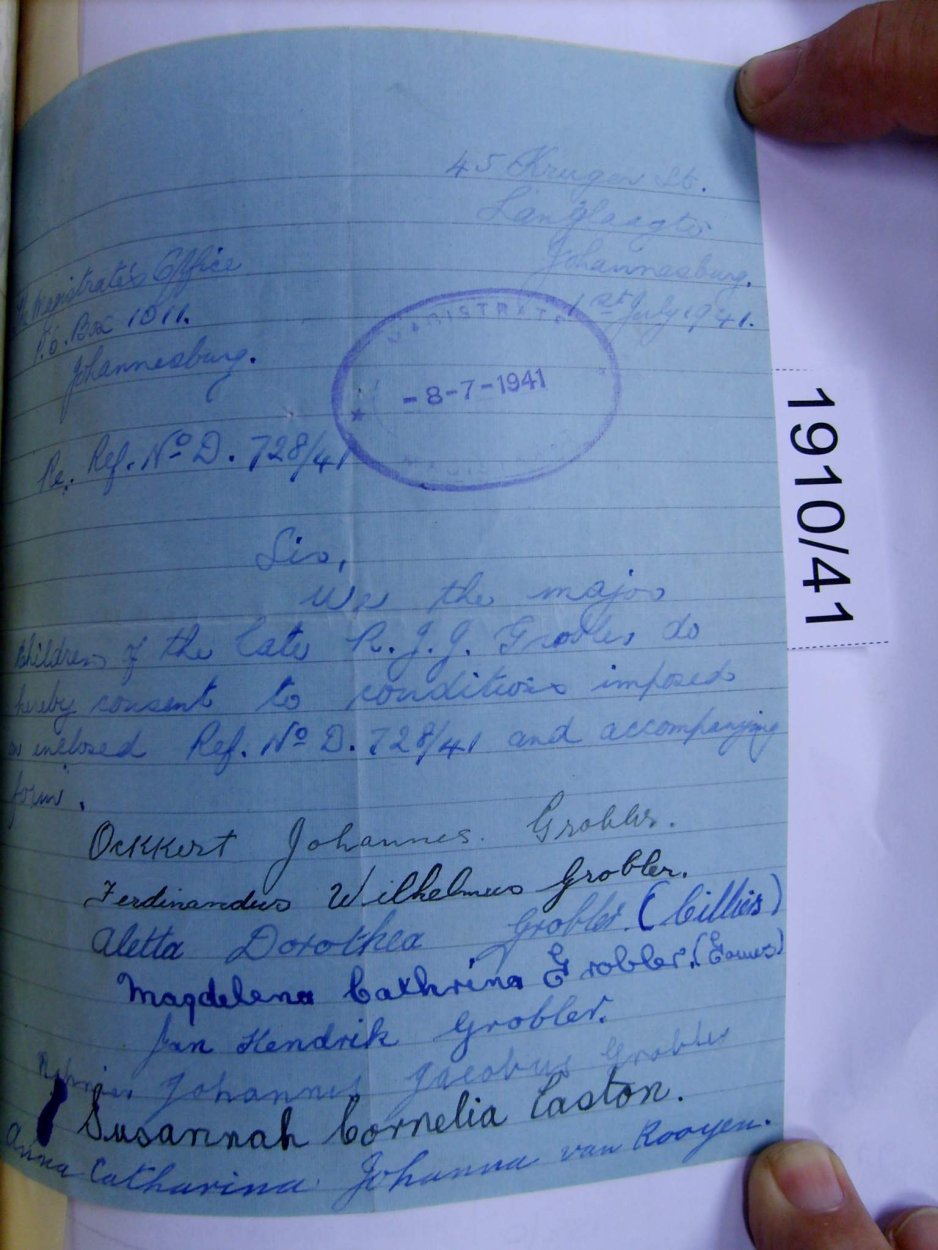 45 Kruger St.
Langlaagte
Johannesburg.
1st July 1941.
The Magistrate's Office
P.O. Box 1011.
Johannesburg.
MAGISTRATE
-8-7-1941
Re. Ref. No D. 728/41
Sir,
We the major
children of the late R. J. J. Grobler do
hereby consent to conditions imposed
on inclosed Ref. No D. 728/41 and accompanying
form.
Ockkert Johannes. Grobler.
Ferdinandus Wilhelmus Grobler.
Aletta Dorothea Grobler. (Cillies)
Magdelena Cathrina Grobler.
Jan Hendrik Grobler.
Johannes Jacobus Grobler
Susannah Cornelia Easton.
Anna Catharina Johanna van Rooyen.
1910/41